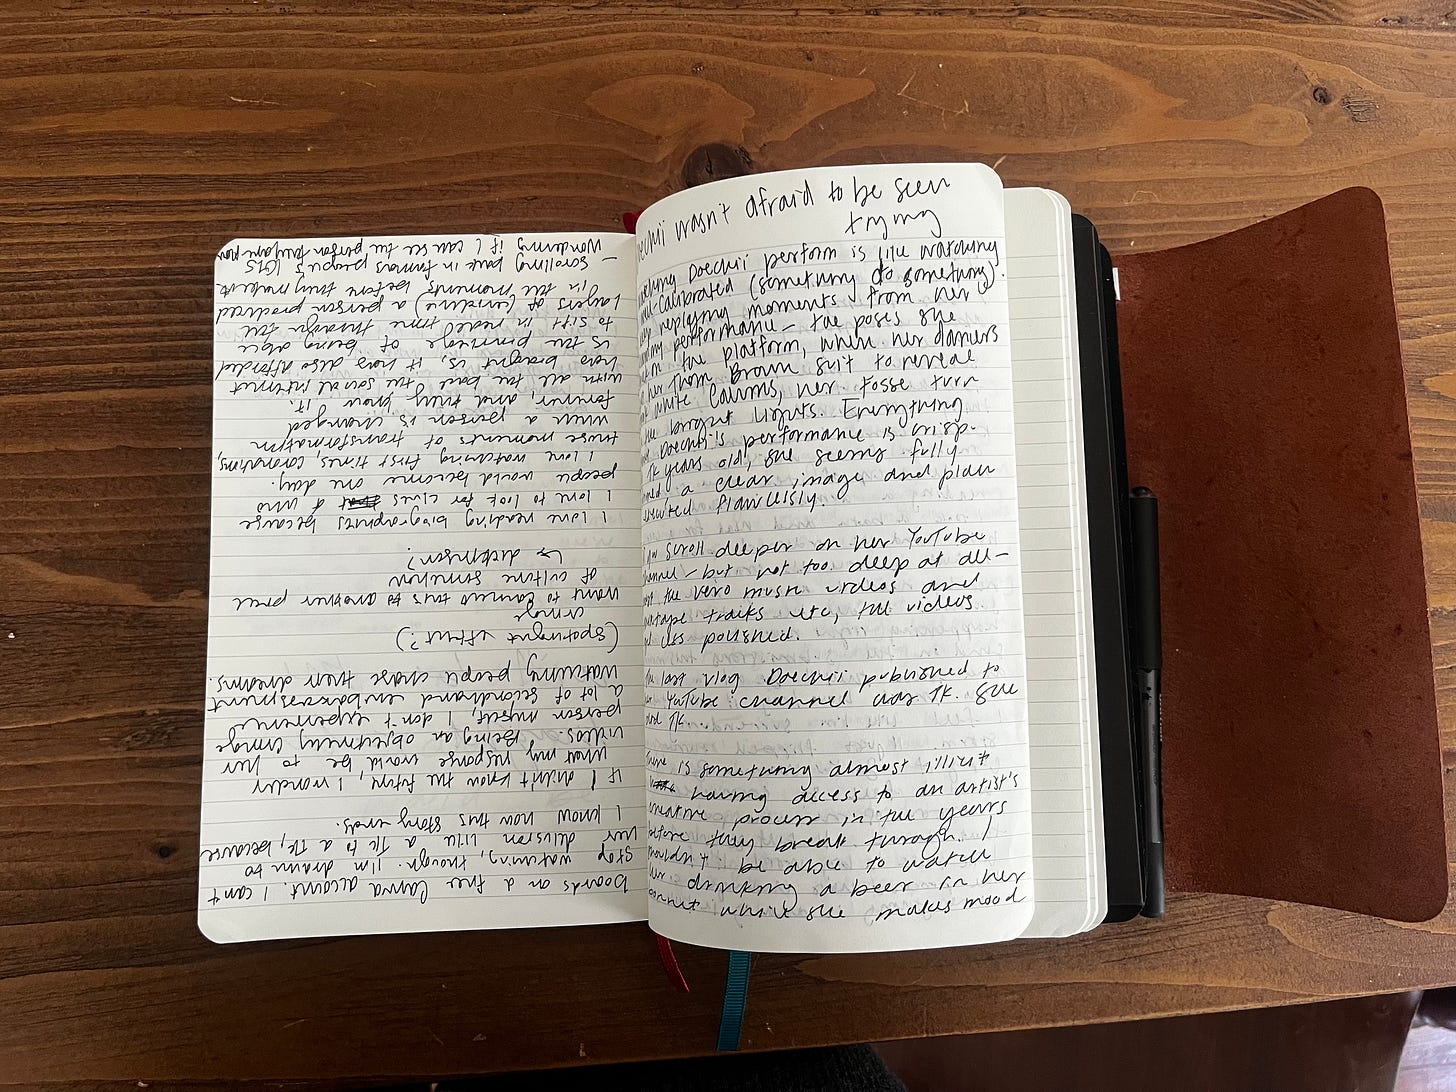 Doechii wasn't afraid to be seen
trying
watching Doechii perform is like watching
well-calibrated (something to something).
keep replaying moments from her
performance – the poses she
the platform, when her dancers
her Thom Brown suit to reveal
white columns, her fosse turn
the bright lights. Everything
Doechii's performance is crisp.
TK years old, she seems fully
a clear image and plan
executed flawlessly.
I scroll deeper on her YouTube
channel – but not too deep at all –
past the Vevo music videos and
mixtape tracks etc, the videos
less polished.
The last vlog Doechii published to
her YouTube channel was TK. She
TK.
There is something almost illicit
having access to an artist's
creative process in the years
before they break through. I
shouldn't be able to watch
her drinking a beer in her
bonnet while she makes mood
boards on a free Canva account. I can't
stop watching, though. I'm drawn to
her delusion like a TK to a TK, because
I know how this story ends.
If I didn't know the future, I wonder
what my response would be to her
videos. Being an objectively cringe
person myself, I don't experience
a lot of secondhand embarrassment
watching people chase their dreams.
(Spotlight effect?)
cringe
want to connect this to another piece
of culture somehow
↳ dickinson?
I love reading biographies because
I love to look for clues of who
people would become one day.
I love watching first times, coronations,
those moments of transformation
when a person is changed
forever, and they know it.
with all the bad the social internet
has brought is, it has also afforded
is the privilege of being able
to sift in real time through the
layers of (evidence) a person produced
in the moments before they made it.
– scrolling back in famous people's IGs
wondering if I can see the person they are now